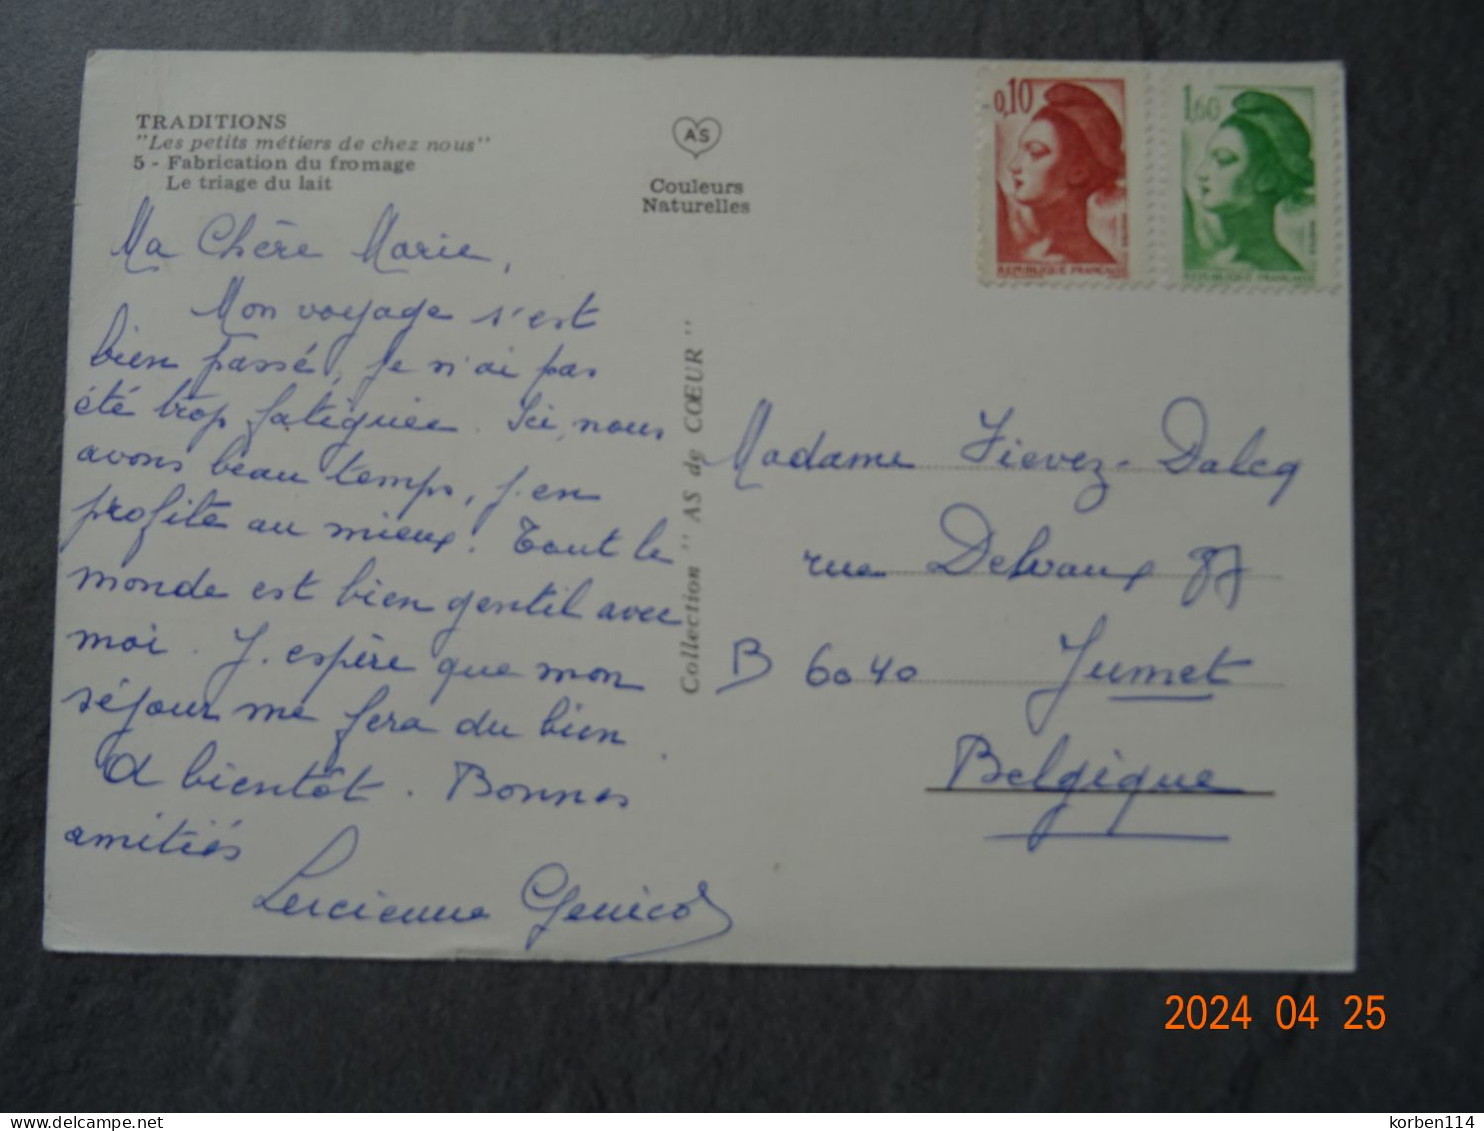 TRADITIONS
"Les petits métiers de chez nous"
5 - Fabrication du fromage
Le triage du lait
AS
Couleurs
Naturelles
0,10
REPUBLIQUE FRANÇAISE
1,60
REPUBLIQUE FRANÇAISE
Ma Chère Marie,
Mon voyage s'est
bien passé, je n'ai pas
été trop fatiguée. Ici, nous
avons beau temps, j'en
profite au mieux. Tout le
monde est bien gentil avec
moi. J'espère que mon
séjour me fera du bien.
A bientôt. Bonnes
amitiés
Lucienne Genicot
Collection "AS de CŒUR"
Madame Fievez-Dalcq
rue Delvaux 87
B 6040 Jumet
Belgique
2024 04 25
delcampe.net
korben114